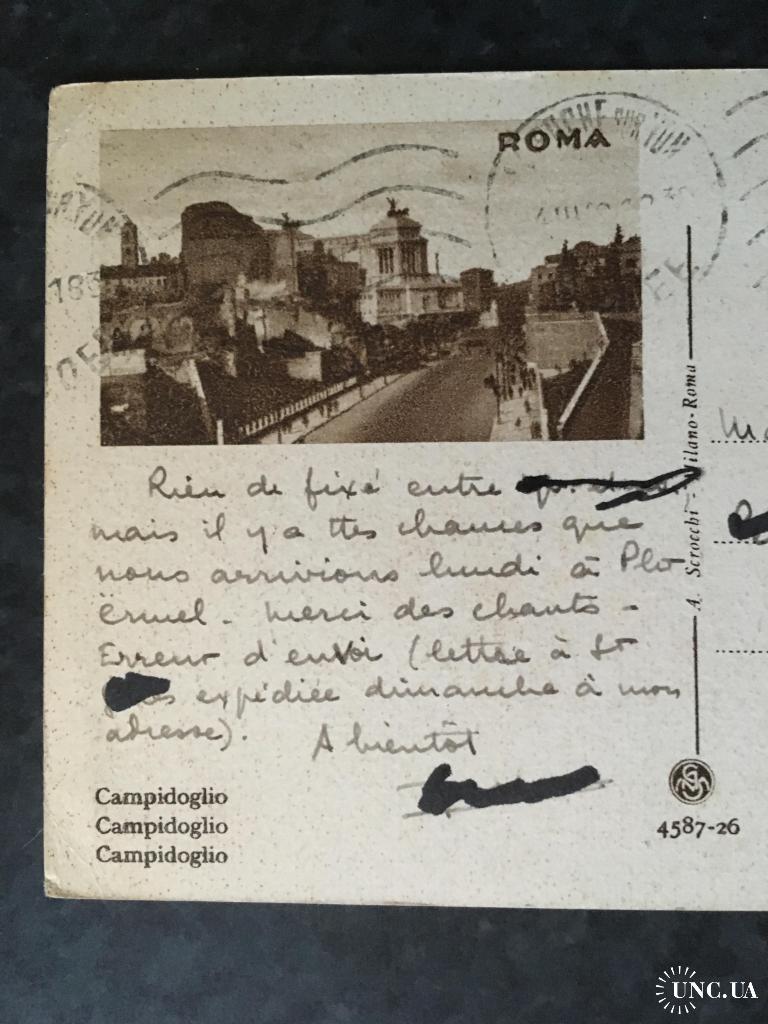 ROMA
Rien de fixé entre
mais il y a ttes chances que
nous arrivions lundi à Plo
ërmel. Merci des chants -
Erreur d'envoi (lettre à St
expédiée dimanche à mon
adresse). A bientôt
Campidoglio
Campidoglio
Campidoglio
A. Scrocchi - Milano-Roma
4587-26
UNC.UA